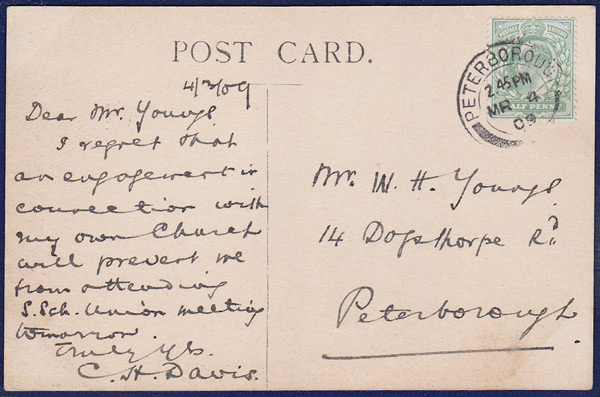 POST CARD.
4/3/09
Dear Mr. Youngs.
I regret that
an engagement in
connection with
my own Church
will prevent me
from attending
S. Sch. Union meeting
tomorrow.
Truly Yrs.
C. H. Davis.
PETERBOROUGH
2.45 PM
MR 4
09
HALF PENNY
Mr. W. H. Youngs.
14 Dogsthorpe Rd
Peterborough.